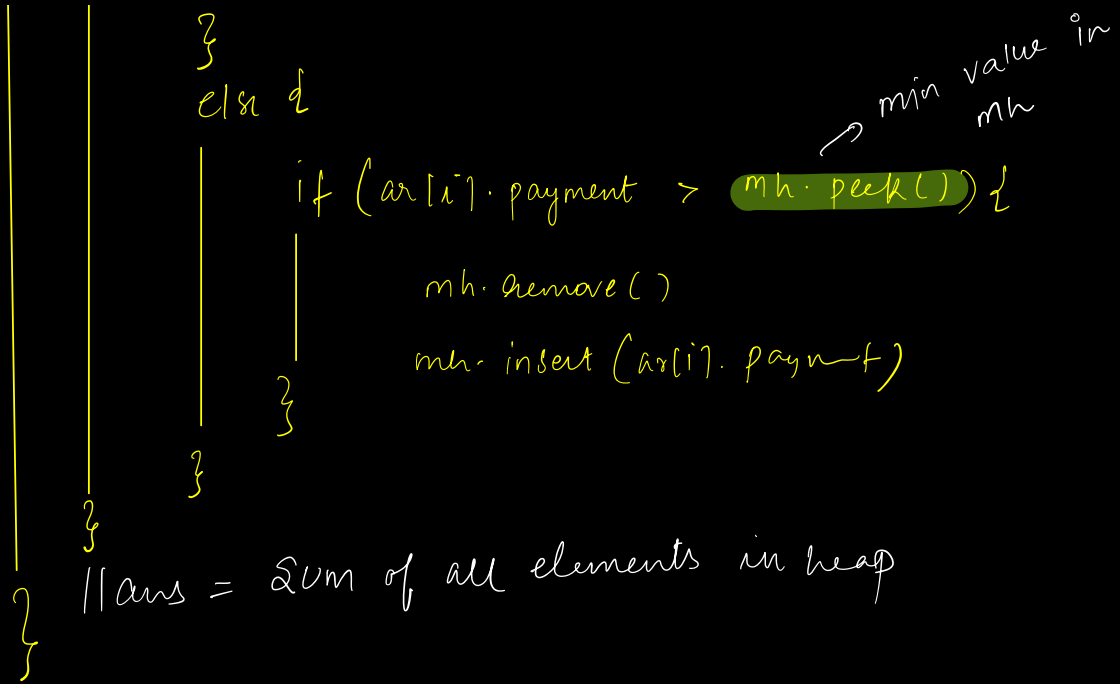 }
else {
min value in
mh
if (ar[i].payment > mh.peek()) {
mh.remove()
mh.insert(ar[i].payment)
}
}
}
//ans = sum of all elements in heap
}